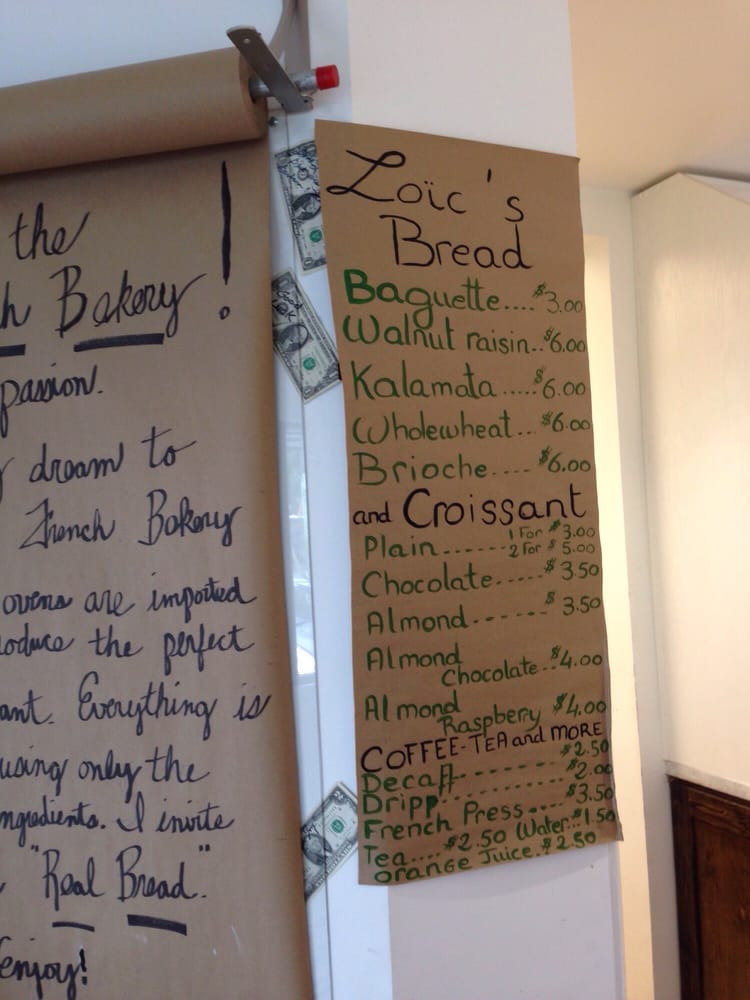 the !
h Bakery
passion.
dream to
French Bakery
ovens are imported
oduce the perfect
ant. Everything is
using only the
ngredients. I invite
"Real Bread."
enjoy!
Loïc's
Bread
Baguette....$3.00
Walnut raisin..$6.00
Kalamata.....$6.00
Wholewheat...$6.00
Brioche....$6.00
and Croissant
Plain------1 For $3.00
2 For $5.00
Chocolate.....$3.50
Almond.------$3.50
Almond
Chocolate..$4.00
Almond
Raspberry $4.00
COFFEE-TEA and MORE
Decaff--------$2.50
Dripp.........$2.00
French Press....$3.50
Tea....$2.50 Water..$1.50
orange Juice.$2.50